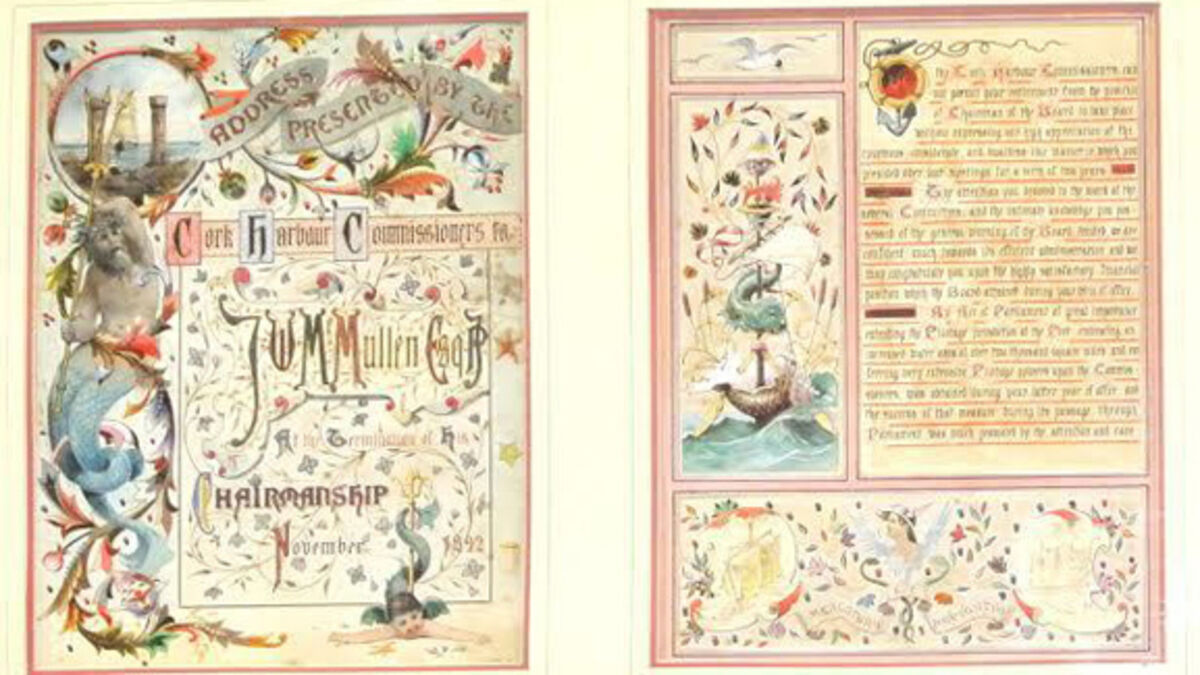 ADDRESS
PRESENTED BY THE
Cork Harbour Commissioners to
J W McMullen Esq JP
At the Termination of His
CHAIRMANSHIP
November 1892
The Cork Harbour Commissioners can
not permit your retirement from the position
of Chairman of the Board to take place
without expressing our high appreciation of the
courteous considerate and business like manner in which you
presided over our meetings for a term of two years
The attention you devoted to the work of the
several Committees and the intimate knowledge you pos-
sessed of the general working of the Board tended we are
confident much towards its efficient administration and we
may congratulate you upon the highly satisfactory financial
position which the Board attained during your term of office.
An Act of Parliament of great importance
extending the Pilotage jurisdiction of the Port
water area of over two thousand square miles and con
ferring very extensive Pilotage powers upon the Commis-
sioners, was obtained during your latter year of office and
the success of that measure during its passage through
Parliament was much promoted by the attention and care